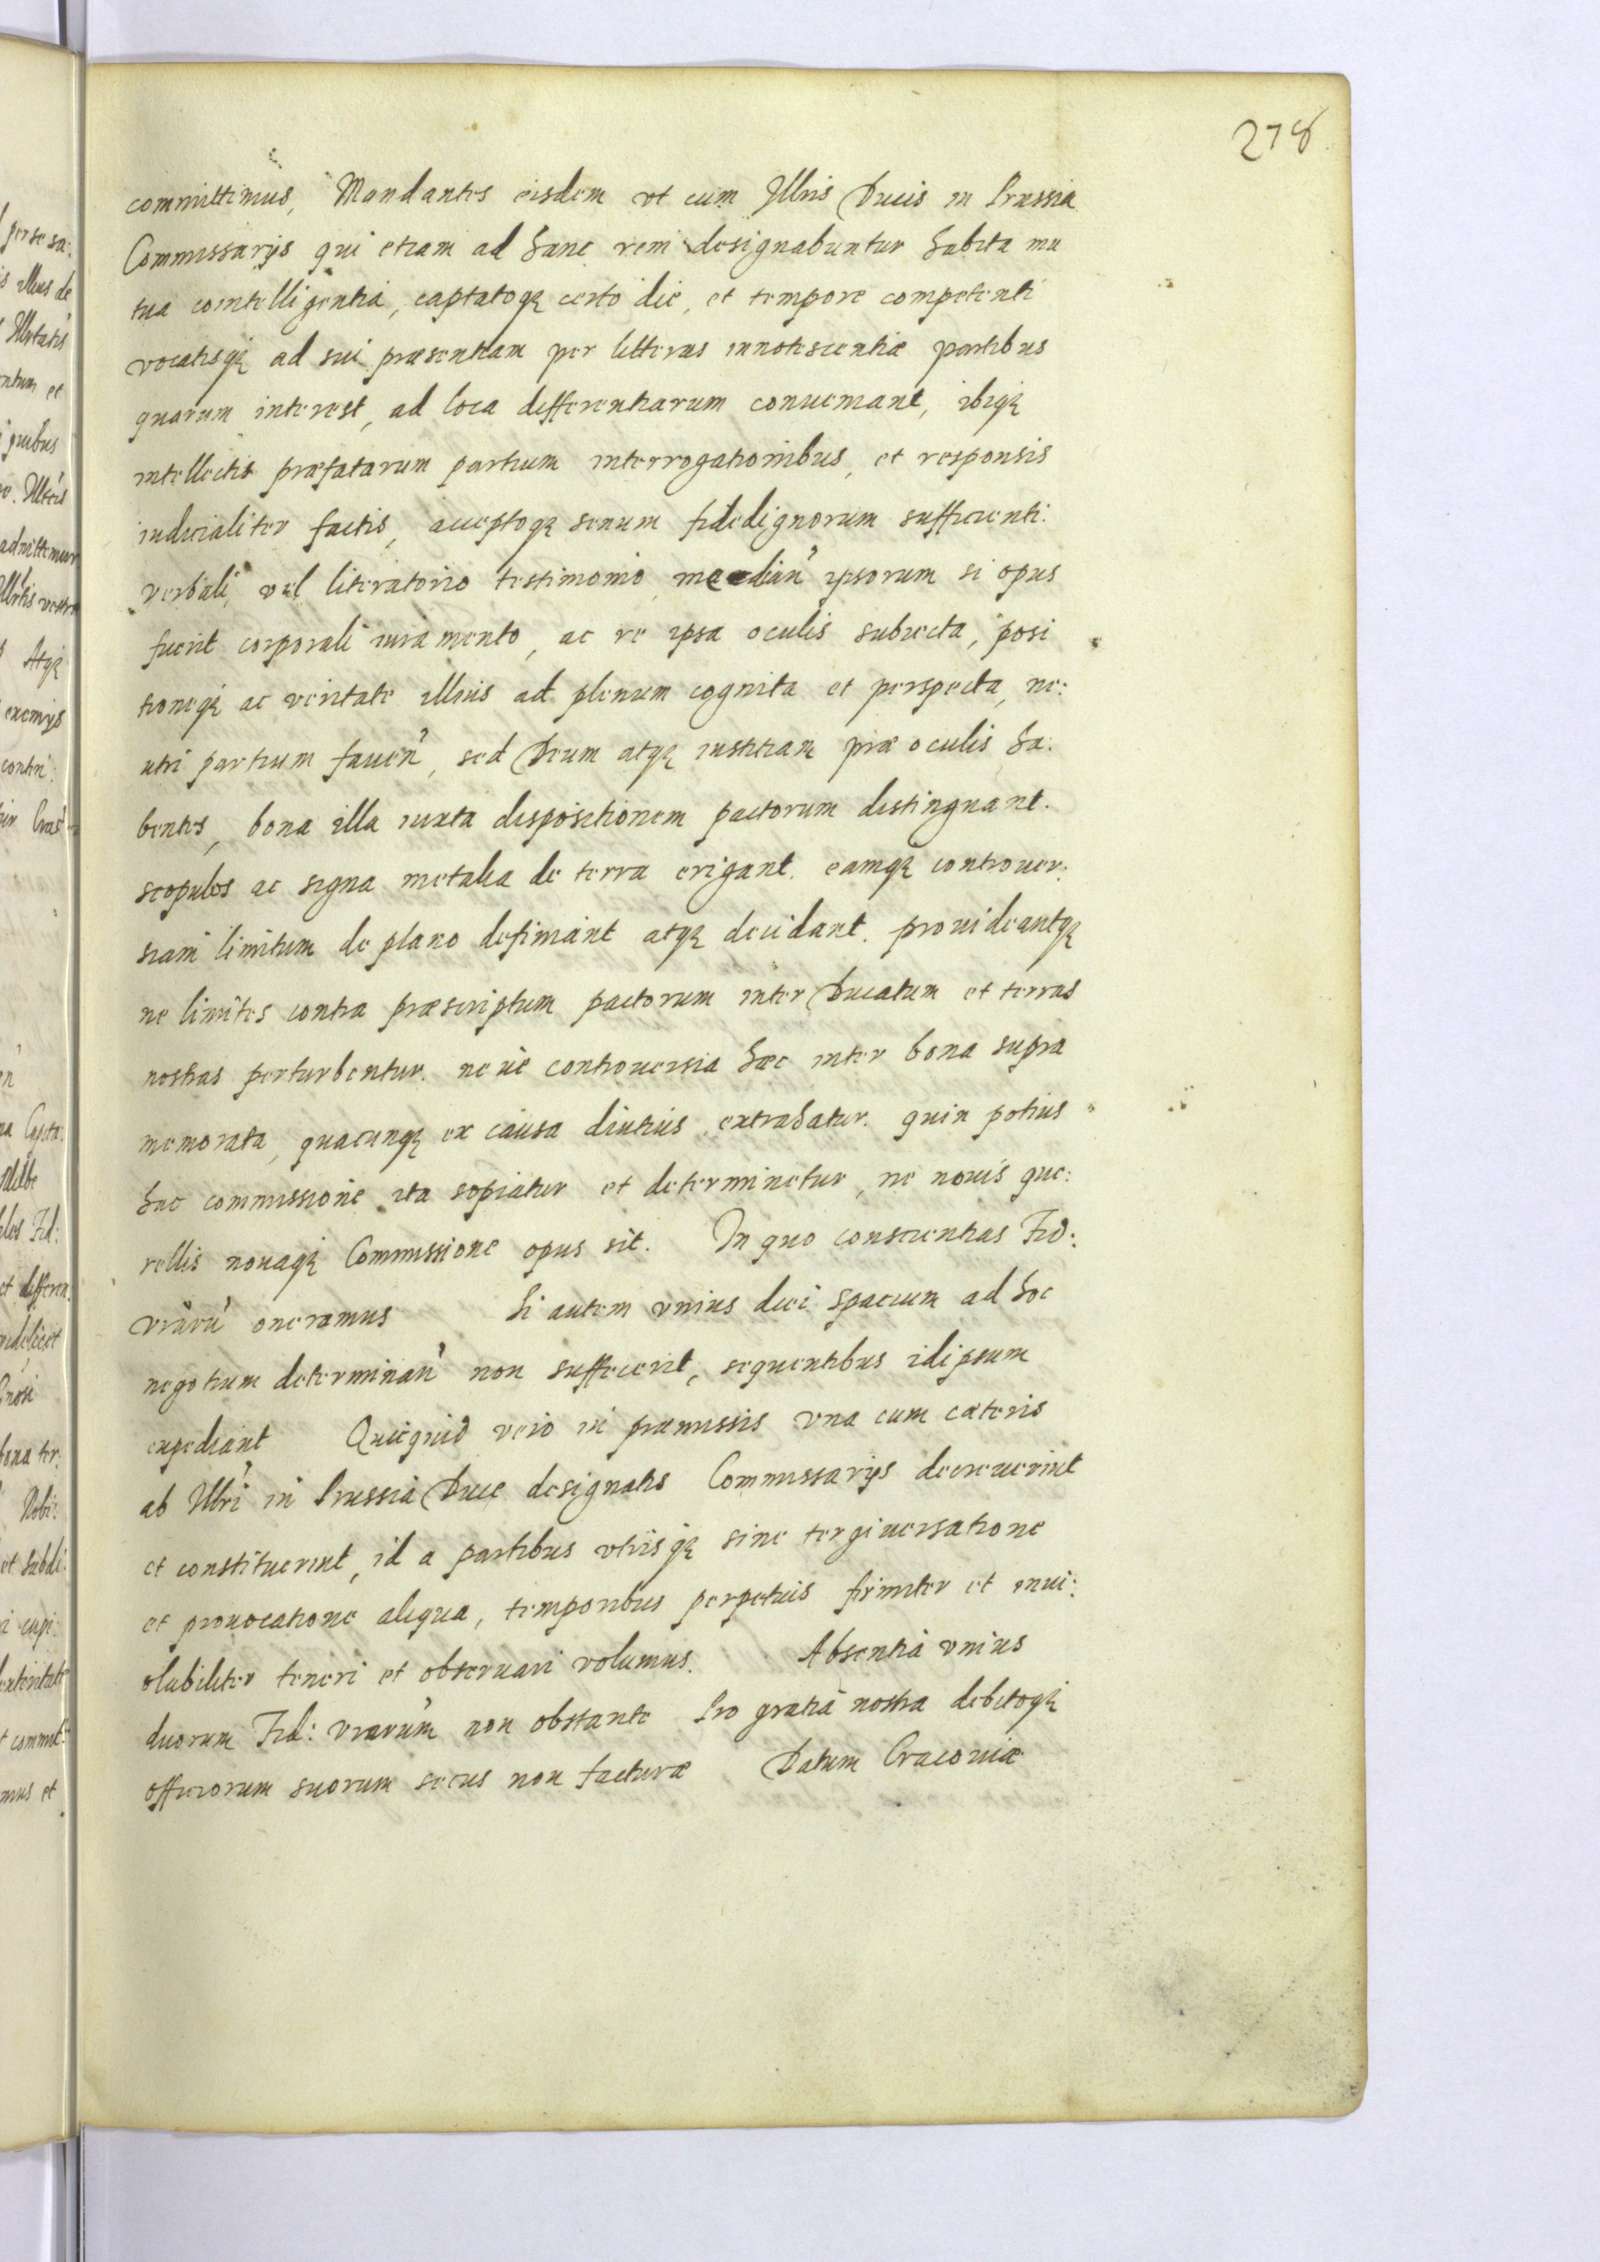 278
committimus, Mandantes eisdem vt cum Illris Ducis in Prussia
Commissarijs qui etiam ad hanc rem designabuntur habita mu
tua cointelligentia, captatoq; certo die, et tempore competenti
vocatisq; ad sui præsentiam per litteras innotescentiæ partibus
quarum interest, ad loca differentiarum conueniant, ibiq;
intellectis præfatarum partium interrogationibus, et responsis
iudicialiter factis, acceptoq; senum fidedignorum sufficienti:
verbali, vel literatorio testimonio, median' ipsorum si opus
fuerit corporali iuramento, ac re ipsa oculis subiecta, posi
tioneq; ac veritate illius ad plenum cognita et perspecta, ne:
utri partium fauen', sed Deum atq; iustitiam præ oculis ha:
bentes, bona illa iuxta dispositionem pactorum distinguant.
scopulos ac signa metalia de terra erigant. eamq; controuer:
siam limitum de plano definiant atq; decidant. prouideantq;
ne limites contra præscriptum pactorum inter Ducatum et terras
nostras perturbentur. neue controuersia hæc inter bona supra
memorata, quacunq; ex causa diutius extrahatur. quin potius
hac commissione ita sopiatur et determinetur, ne nouis que:
rellis nouaq; Commissione opus sit. In quo conscientias Fid:
vraru' oneramus Si autem vnius diei spacium ad hoc
negotium determinan' non suffecerit, sequentibus idipsum
expediant Quicquid vero in præmissis vna cum cæteris
ab Illri' in Prussia Duce designatis Commissarijs decreuerint
et constituerint, id a partibus vtrisq; sine tergiuersatione
et prouocatione aliqua, temporibus perpetuis firmiter et inui:
olabiliter teneri et obseruari volumus. Absentia vnius
duorum Fid: vrarum non obstante Pro gratia nostra debitoq;
officiorum suorum secus non facturæ Datum Cracouiæ